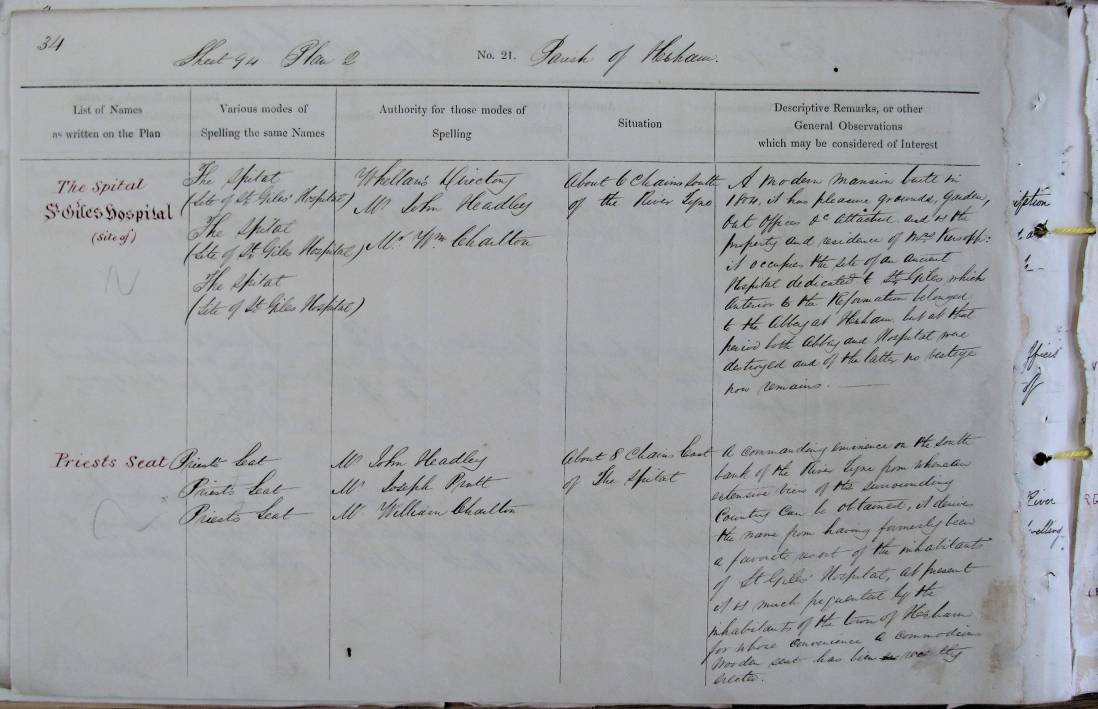 34
Sheet 94 Plan 2 No. 21. Parish of Hexham.
List of Names
as written on the Plan
Various modes of
Spelling the same Names
Authority for those modes of
Spelling
Situation
Descriptive Remarks, or other
General Observations
which may be considered of Interest
The Spital
St Giles Hospital
(Site of)
The Spital
(Site of St. Giles Hospital)
The Spital
(Site of St. Giles Hospital)
The Spital
(Site of St. Giles Hospital)
Whellan's Directory
Mr John Headley
Mr Wm Charlton
About 6 Chains South
of the River Tyne
A modern mansion built in
it has pleasure grounds, garden,
Out Offices &c attached and is the
property and residence of Mrs Kirsopp:
it occupies the site of an ancient
Hospital dedicated to St. Giles, which
Anterior to the Reformation belonged
to the Abbey at Hexham, but at that
period both Abbey and Hospital were
destroyed and of the latter no vestige
now remains.
Priests Seat
Priests Seat
Priests Seat
Priests Seat
Mr John Headley
Mr Joseph Pratt
Mr William Charlton
About 8 Chains East
of The Spital
A commanding eminence on the south
bank of the River Tyne from whence an
extensive view of the surrounding
Country can be obtained, it derives
the name from having formerly been
a favorite resort of the inhabitants
of St Giles' Hospital, at present
it is much frequented by the
inhabitants of the town of Hexham
for whose convenience a commodious
Wooden seat has been recently
erected.
iption
Offices
of
River
welling